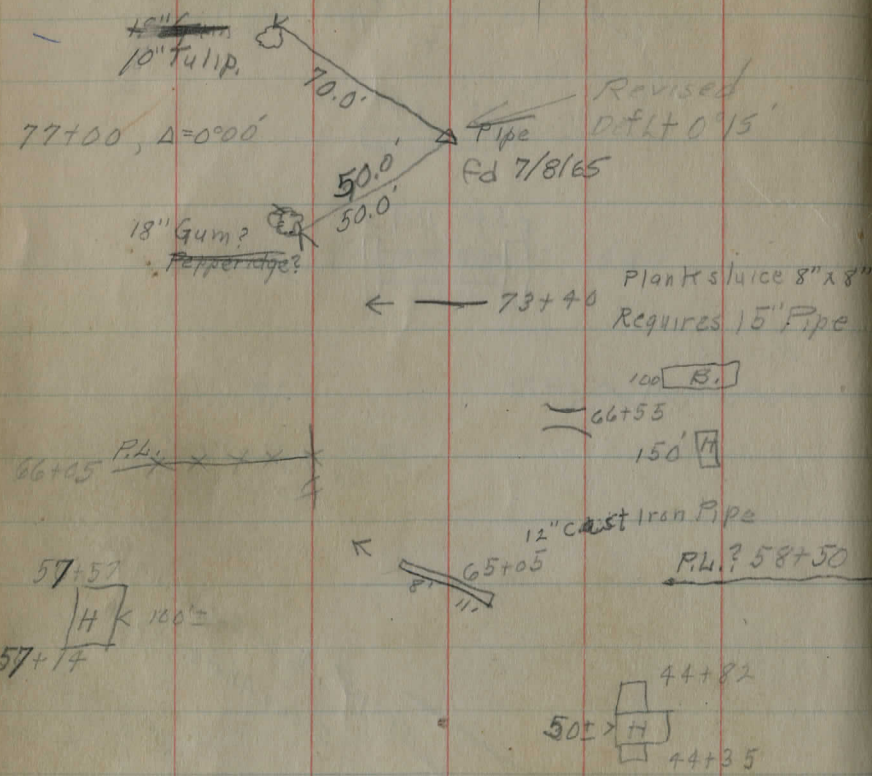 10" Tulip.
70.0'
Revised
Def Lt 0°15'
77+00, Δ=0°00'
Pipe
fd 7/8/65
50.0'
50.0'
18" Gum?
Pepperidge?
Plank sluice 8" x 8"
← 73+40
Requires 15" Pipe
100 B.
66+55
150' H
P.L.
66+05
12" Cast Iron Pipe
65+05
8' 11'
P.L.? 58+50
57+57
H < 100'±
57+14
44+82
50± > H
44+35